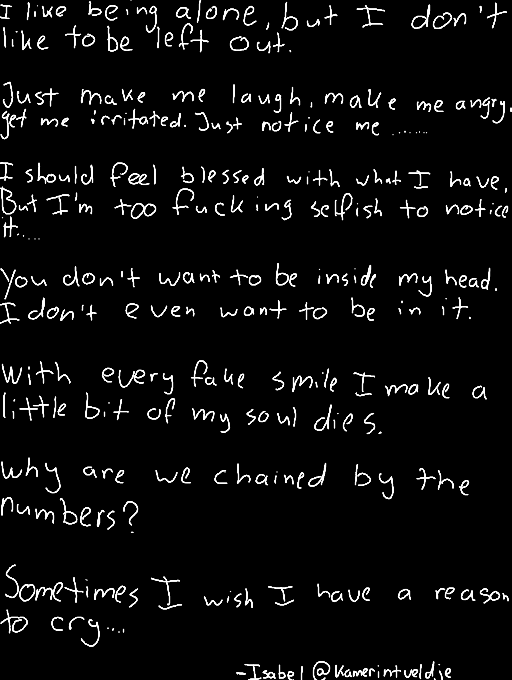 I like being alone, but I don't
like to be left out.
Just make me laugh, make me angry.
get me irritated. Just notice me .......
I should feel blessed with what I have,
But I'm too fucking selfish to notice
it.....
You don't want to be inside my head.
I don't even want to be in it.
With every fake smile I make a
little bit of my soul dies.
why are we chained by the
numbers?
Sometimes I wish I have a reason
to cry....
-Isabel @kamerintveldje